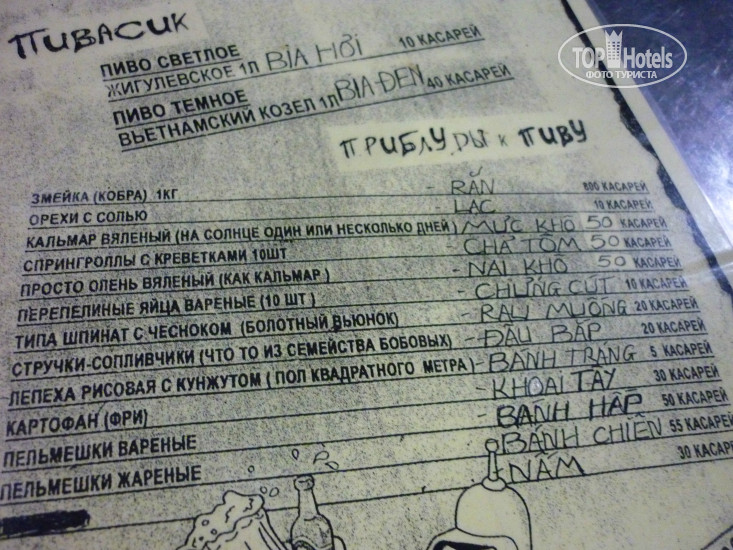 ПИВАСИК
TOP Hotels
ФОТО ТУРИСТА
ПИВО СВЕТЛОЕ
ЖИГУЛЕВСКОЕ 1Л BIA HƠI 10 КАСАРЕЙ
ПИВО ТЕМНОЕ
ВЬЕТНАМСКИЙ КОЗЕЛ 1Л BIA ĐEN 40 КАСАРЕЙ
ПРИБЛУДЫ К ПИВУ
ЗМЕЙКА (КОБРА) 1КГ - RẮN 800 КАСАРЕЙ
ОРЕХИ С СОЛЬЮ - LẠC 10 КАСАРЕЙ
КАЛЬМАР ВЯЛЕНЫЙ (НА СОЛНЦЕ ОДИН ИЛИ НЕСКОЛЬКО ДНЕЙ) - MỰC KHÔ 50 КАСАРЕЙ
СПРИНГРОЛЛЫ С КРЕВЕТКАМИ 10ШТ - CHẢ TÔM 50 КАСАРЕЙ
ПРОСТО ОЛЕНЬ ВЯЛЕНЫЙ (КАК КАЛЬМАР) - NAI KHÔ 50 КАСАРЕЙ
ПЕРЕПЕЛИНЫЕ ЯЙЦА ВАРЕНЫЕ (10 ШТ) - CHỨNG CÚT 10 КАСАРЕЙ
ТИПА ШПИНАТ С ЧЕСНОКОМ (БОЛОТНЫЙ ВЬЮНОК) - RAU MUỐNG 20 КАСАРЕЙ
СТРУЧКИ-СОПЛИВЧИКИ (ЧТО ТО ИЗ СЕМЕЙСТВА БОБОВЫХ) - ĐẬU BẮP 20 КАСАРЕЙ
ЛЕПЕХА РИСОВАЯ С КУНЖУТОМ (ПОЛ КВАДРАТНОГО МЕТРА) - BÁNH TRÁNG 5 КАСАРЕЙ
КАРТОФАН (ФРИ) - KHOAI TÂY 30 КАСАРЕЙ
ПЕЛЬМЕШКИ ВАРЕНЫЕ - BÁNH HẤP 50 КАСАРЕЙ
ПЕЛЬМЕШКИ ЖАРЕНЫЕ - BÁNH CHIÊN 55 КАСАРЕЙ
- NẤM 30 КАСАРЕЙ